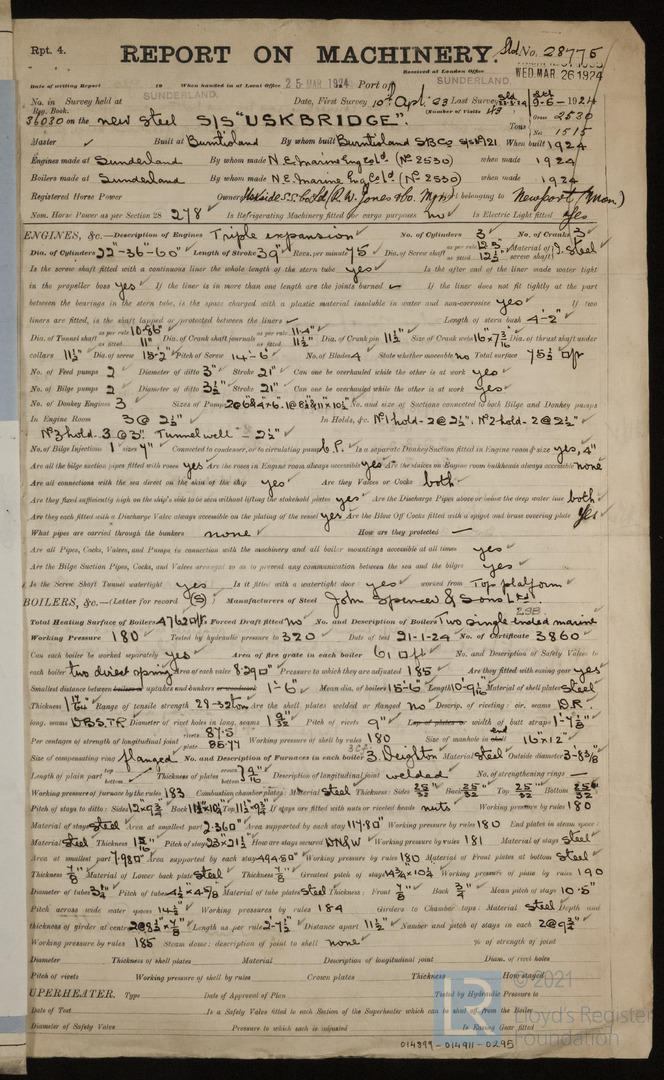 Rpt. 4. REPORT ON MACHINERY. Sld No. 28775
Received at London Office WED. MAR. 26 1924
Date of writing Report 19 When handed in at Local Office 25 MAR 1924 Port of SUNDERLAND.
No. in Survey held at SUNDERLAND Date, First Survey 10th Apl. 23 Last Survey
Reg. Book. (Number of Visits 43)
36030 on the new steel S/S "USKBRIDGE". Tons Gross 2530 Net 1515
Master Built at Burntisland By whom built Burntisland S.B. Co When built 1924
Engines made at Sunderland By whom made N.E. Marine Eng Co Ld (No 2530) when made 1924
Boilers made at Sunderland By whom made N.E. Marine Eng Co Ld (No 2530) when made 1924
Registered Horse Power Owners (R.W. Jones & Co. Mgrs) Port belonging to Newport (Mon)
Nom. Horse Power as per Section 28 278 Is Refrigerating Machinery fitted for cargo purposes no Is Electric Light fitted Yes
ENGINES, &c.—Description of Engines Triple expansion No. of Cylinders 3 No. of Cranks 3
Dia. of Cylinders 22"-36"-60" Length of Stroke 39" Revs. per minute 75 Dia. of Screw shaft as per rule as fitted 12½" Material of screw shaft I. Steel
Is the screw shaft fitted with a continuous liner the whole length of the stern tube yes Is the after end of the liner made water tight
in the propeller boss yes If the liner is in more than one length are the joints burned If the liner does not fit tightly at the part
between the bearings in the stern tube, is the space charged with a plastic material insoluble in water and non-corrosive yes If two
liners are fitted, is the shaft lapped or protected between the liners Length of stern bush 4'-2"
Dia. of Tunnel shaft as per rule 10.86" as fitted 11" Dia. of Crank shaft journals as per rule 11.4" as fitted 11½" Dia. of Crank pin 11½" Size of Crank webs 16"x7 3/16" Dia. of thrust shaft under
collars 11½" Dia. of screw 15'-2" Pitch of Screw 14'-6" No. of Blades 4 State whether moveable no Total surface 75½ □ft
No. of Feed pumps 2 Diameter of ditto 3" Stroke 21" Can one be overhauled while the other is at work yes
No. of Bilge pumps 2 Diameter of ditto 3½" Stroke 21" Can one be overhauled while the other is at work yes
No. of Donkey Engines 3 Sizes of Pumps No. and size of Suctions connected to both Bilge and Donkey pumps
In Engine Room 3 @ 2½" In Holds, &c. No 1 hold - 2 @ 2½", No 2 hold - 2 @ 2½"
No 3 hold - 3 @ 3". Tunnel well - 2½"
No. of Bilge Injections 1 sizes 4" Connected to condenser, or to circulating pump C.P. Is a separate Donkey Suction fitted in Engine room & size yes, 4"
Are all the bilge suction pipes fitted with roses yes Are the roses in Engine room always accessible yes Are the sluices on Engine room bulkheads always accessible none
Are all connections with the sea direct on the skin of the ship yes Are they Valves or Cocks both
Are they fixed sufficiently high on the ship's side to be seen without lifting the stokehold plates yes Are the Discharge Pipes above or below the deep water line both
Are they each fitted with a Discharge Valve always accessible on the plating of the vessel yes Are the Blow Off Cocks fitted with a spigot and brass covering plate yes
What pipes are carried through the bunkers none How are they protected —
Are all Pipes, Cocks, Valves, and Pumps in connection with the machinery and all boiler mountings accessible at all times yes
Are the Bilge Suction Pipes, Cocks, and Valves arranged so as to prevent any communication between the sea and the bilges yes
Is the Screw Shaft Tunnel watertight yes Is it fitted with a watertight door yes worked from Top platform
BOILERS, &c.—(Letter for record (S)) Manufacturers of Steel John Spencer & Sons Ltd.
Total Heating Surface of Boilers 4762 □ft Forced Draft fitted no No. and Description of Boilers Two single ended marine
Working Pressure 180 Tested by hydraulic pressure to 320 Date of test 21-1-24 No. of Certificate 3860
Can each boiler be worked separately yes Area of fire grate in each boiler 61 □ft No. and Description of Safety Valves to
each boiler two direct spring Area of each valve 8.29□" Pressure to which they are adjusted 185 Are they fitted with easing gear yes
Smallest distance between boilers or uptakes and bunkers or woodwork 1'-6" Mean dia. of boilers 15'-6" Length 10'-9 9/16" Material of shell plates Steel
Thickness Range of tensile strength 28-32 tons Are the shell plates welded or flanged no Descrip. of riveting: cir. seams D.R.
long. seams D.B.S.T.R. Diameter of rivet holes in long. seams 1 9/32" Pitch of rivets 9" Lap of plates or width of butt straps 1'-7⅛"
Per centages of strength of longitudinal joint rivets 87.5 plate 85.77 Working pressure of shell by rules 180 Size of manhole in end 16"x12"
Size of compensating ring flanged No. and Description of Furnaces in each boiler 3. Deighton Material Steel Outside diameter 3'-8⅜"
Length of plain part top bottom Thickness of plates crown bottom Description of longitudinal joint welded No. of strengthening rings —
Working pressure of furnace by the rules 183 Combustion chamber plates: Material Steel Thickness: Sides 25/32" Back 25/32" Top 25/32" Bottom 25/32"
Pitch of stays to ditto: Sides Back Top If stays are fitted with nuts or riveted heads nuts Working pressure by rules 180
Material of stays Steel Area at smallest part 2.36□" Area supported by each stay 117.8□" Working pressure by rules 180 End plates in steam space:
Material Steel Thickness Pitch of stays 23"x21½" How are stays secured D.N.&W Working pressure by rules 181 Material of stays Steel
Area at smallest part 7.98□" Area supported by each stay 494.5□" Working pressure by rules 180 Material of Front plates at bottom Steel
Thickness ⅞" Material of Lower back plate Steel Thickness ⅞" Greatest pitch of stays Working pressure of plate by rules 190
Diameter of tubes 3¼" Pitch of tubes 4½"x4⅝" Material of tube plates Steel Thickness: Front ⅞" Back ¾" Mean pitch of stays 10.5"
Pitch across wide water spaces 14½" Working pressures by rules 184 Girders to Chamber tops: Material Steel Depth and
thickness of girder at centre 2@8½"x⅞" Length as per rule 2'-7½" Distance apart 11½" Number and pitch of stays in each 2@9¾"
Working pressure by rules 185 Steam dome: description of joint to shell none % of strength of joint
Diameter Thickness of shell plates Material Description of longitudinal joint Diam. of rivet holes
Pitch of rivets Working pressure of shell by rules Crown plates Thickness How stayed
UPERHEATER. Type Date of Approval of Plan Tested by Hydraulic Pressure to
Date of Test Is a Safety Valve fitted to each Section of the Superheater which can be shut off from the Boiler
Diameter of Safety Valve Pressure to which each is adjusted Is Easing Gear fitted
© 2021
LR Lloyd's Register
Foundation
014899-014911-0295